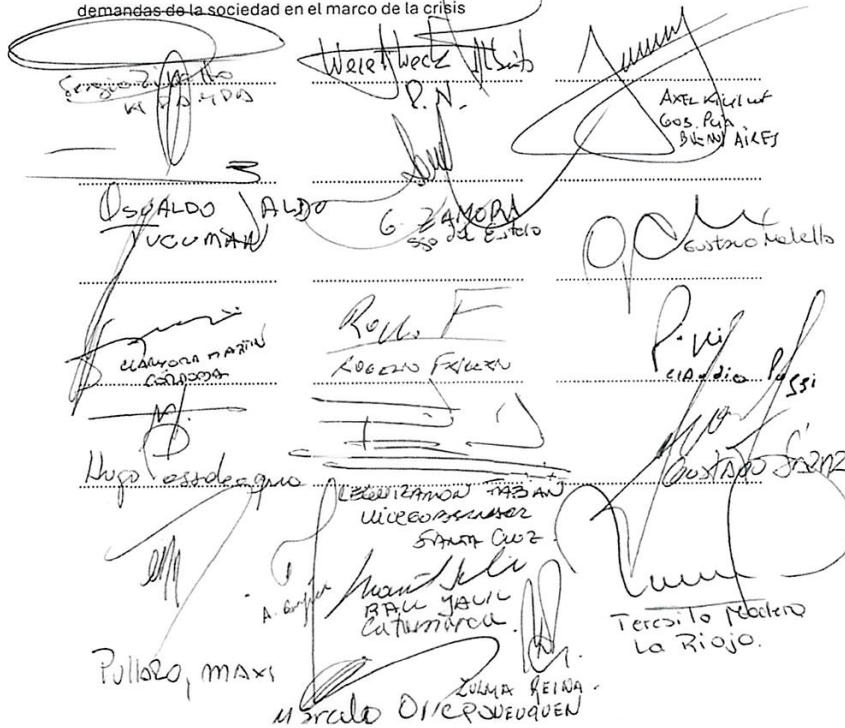 demandas de la sociedad en el marco de la crisis
Sergio Ziliotto
LA PAMPA
Weretilneck Alberto
R.N.
AXEL Kicillof
GOB. Pcia.
BUENOS AIRES
OSVALDO JALDO
TUCUMAN
G. ZAMORA
Sgo del Estero
Gustavo Melella
LLARYORA MARTIN
CÓRDOBA
Roge. F
ROGELIO FRIGERIO
Claudio Poggi
Hugo Passalacqua
LEGUIZAMON FABIAN
VICEGOBERNADOR
SANTA CRUZ
GUSTAVO SÁENZ
Pullaro, MAXI
RAUL JALIL
Catamarca
Teresita Madera
La Rioja.
ZULMA REINA.
NEUQUEN
Marcelo Orrego